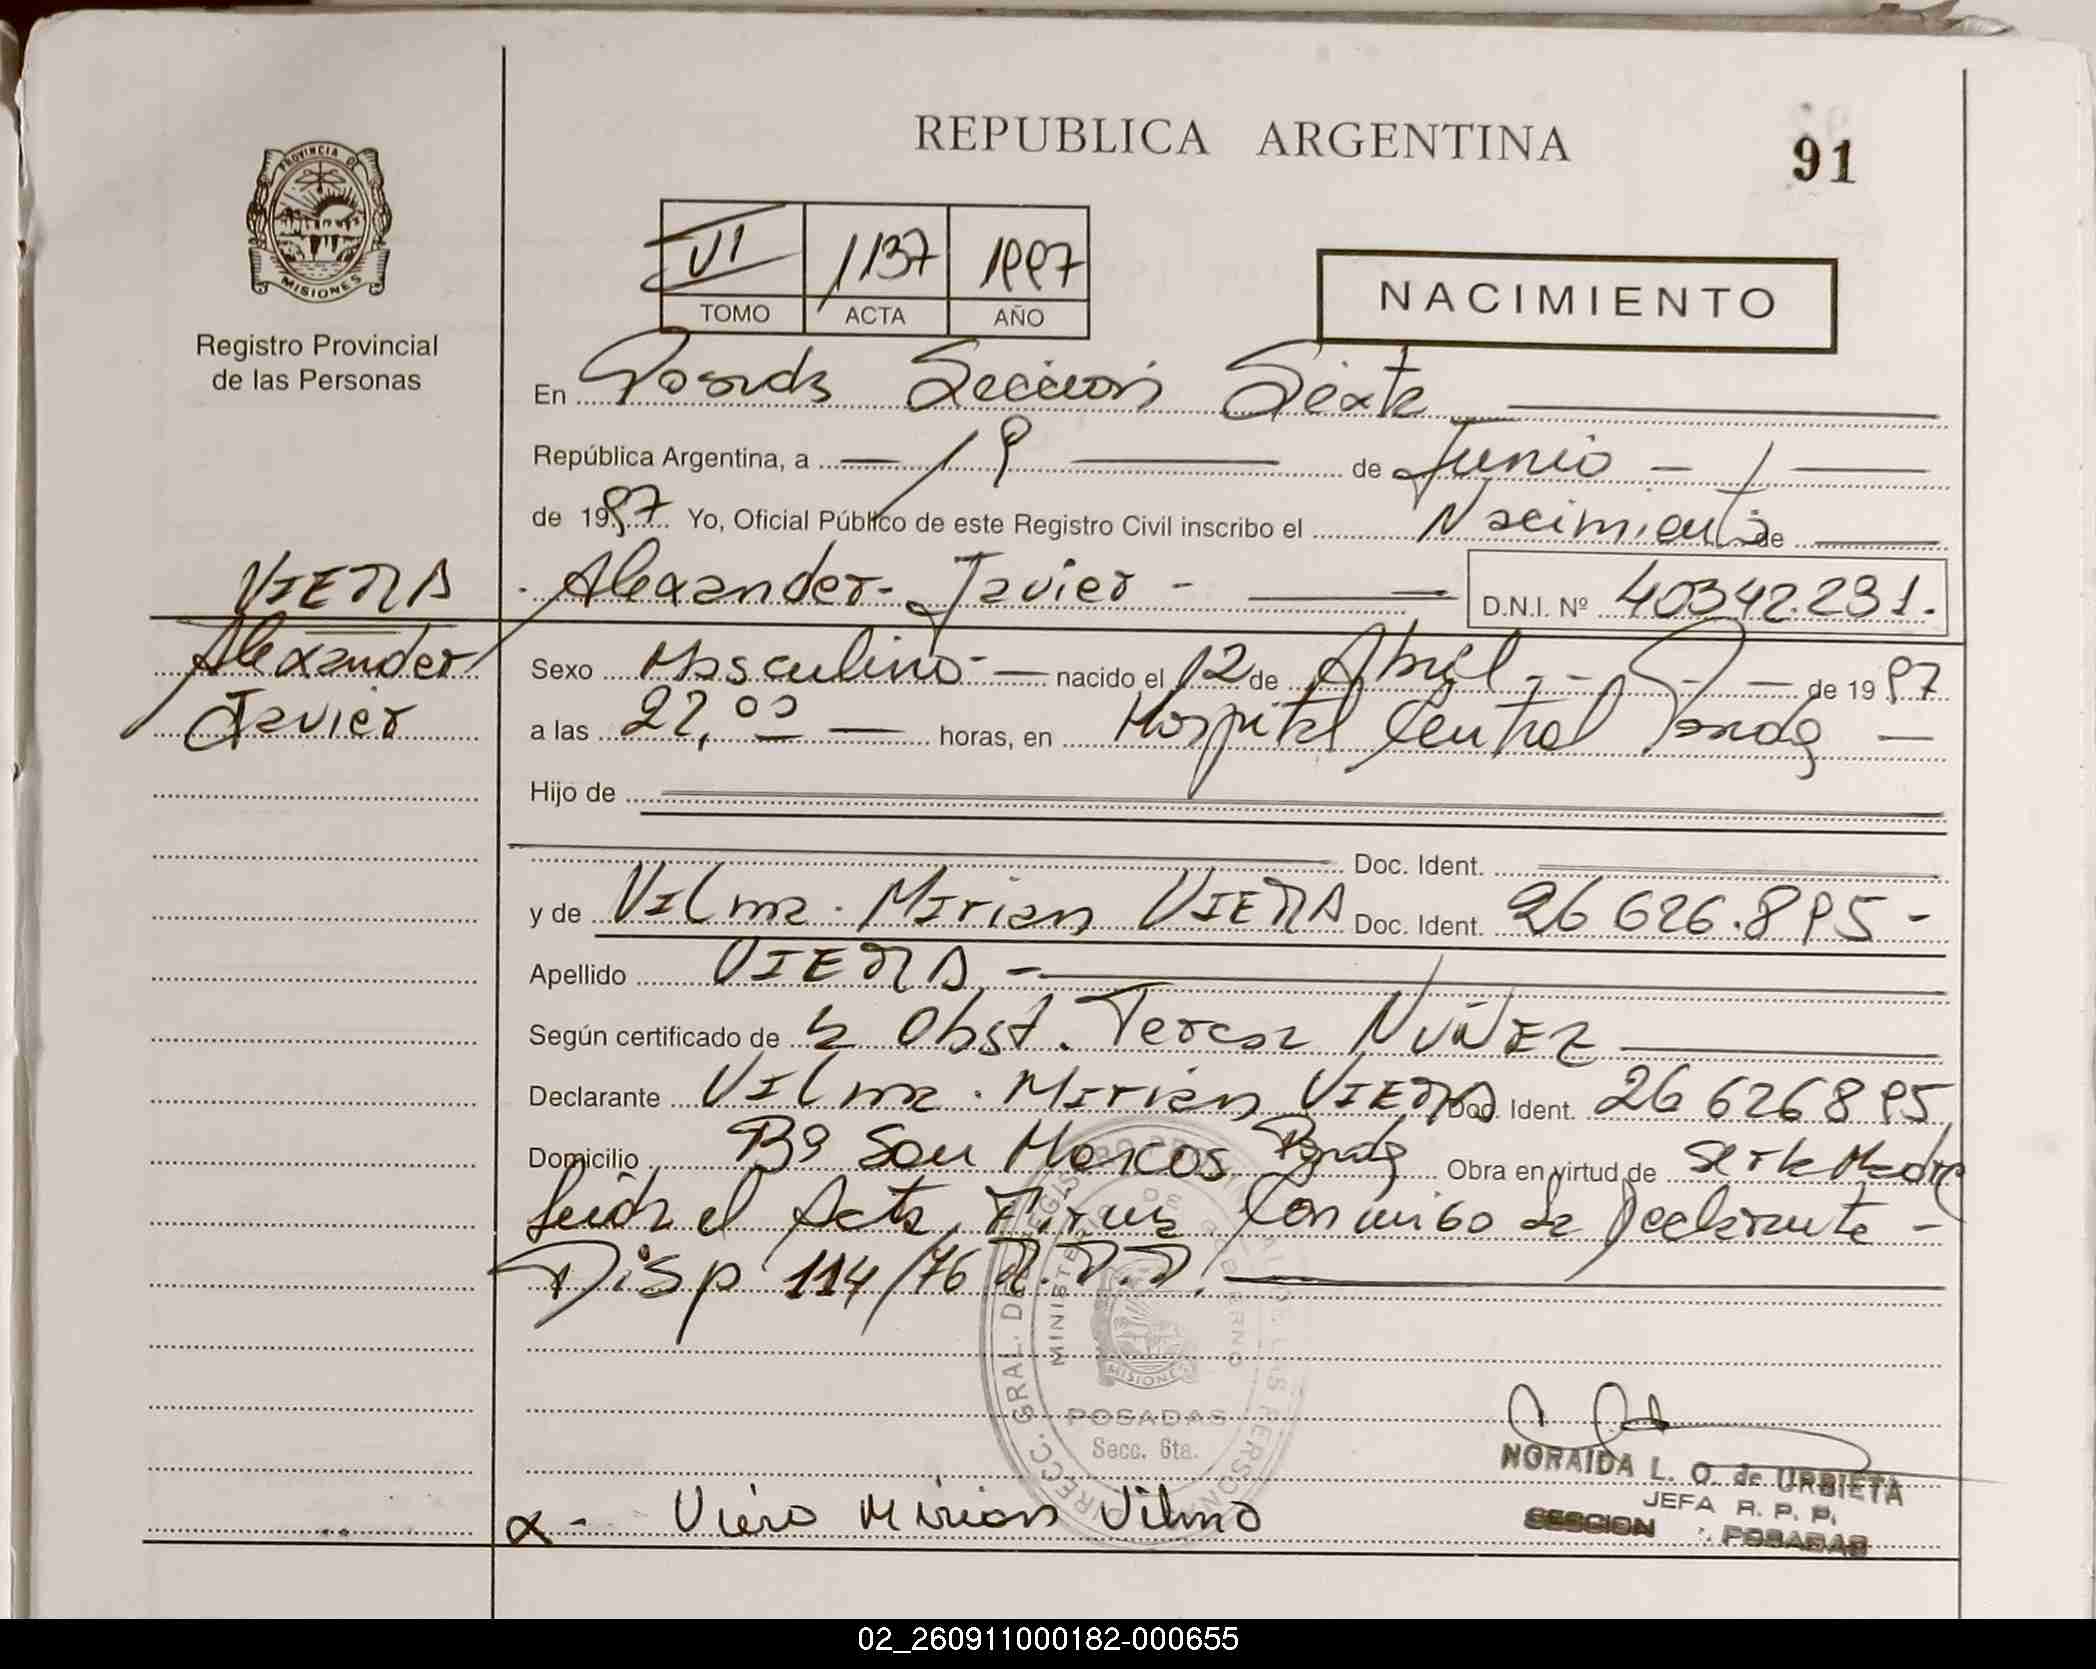 REPUBLICA ARGENTINA
91
PROVINCIA DE
MISIONES
Registro Provincial
de las Personas
VI 1137 1997
TOMO ACTA AÑO
NACIMIENTO
En Posadas Sección Sexta
República Argentina, a 19 de Junio
de 1997 Yo, Oficial Público de este Registro Civil inscribo el Nacimiento de
Alexander Javier D.N.I. Nº 40342.231.
VIERA
Alexander
Javier
Sexo Masculino nacido el 12 de Abril de 1997
a las 22,00 horas, en Hospital Central Posadas
Hijo de
Doc. Ident.
y de Vilma Mirian VIERA Doc. Ident. 26 626.895-
Apellido VIERA -
Según certificado de la Obst. Teresa NUÑEZ
Declarante Vilma Mirian VIERA Doc. Ident. 26 626 895
Domicilio Bº San Marcos Posadas Obra en virtud de ser la Madre
Leída el Acta, Firma Conmigo la Declarante -
Disp 114/76 R.P.P.
DIRECC. GRAL. DEL REGISTRO PROVINCIAL DE LAS PERSONAS
MINISTERIO DE GOBIERNO
MISIONES
POSADAS
Secc. 6ta.
NORAIDA L. O. de URBIETA
JEFA R. P. P.
SECCION POSADAS
x- Viera Mirian Vilma
02_260911000182-000655